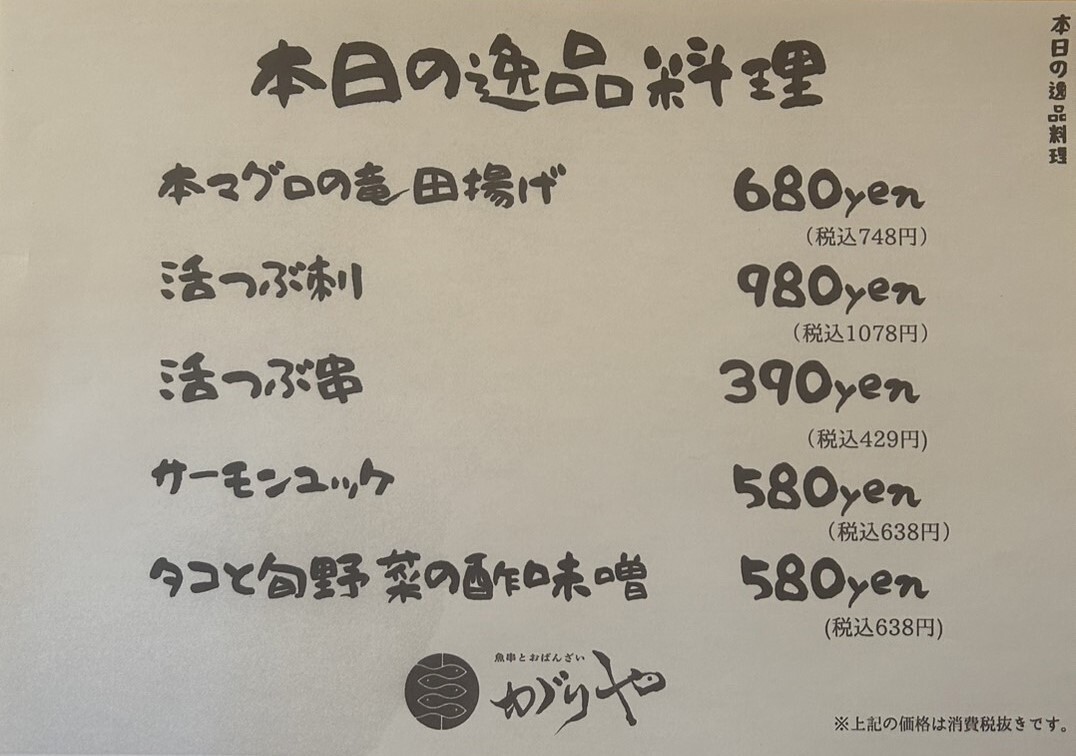 本日の逸品料理
本日の逸品料理
本マグロの竜田揚げ 680yen
（税込748円）
活つぶ刺 980yen
（税込1078円）
活つぶ串 390yen
（税込429円)
サーモンユッケ 580yen
（税込638円）
タコと旬野菜の酢味噌 580yen
(税込638円)
魚串とおばんざい
めぐりや
※上記の価格は消費税抜きです。